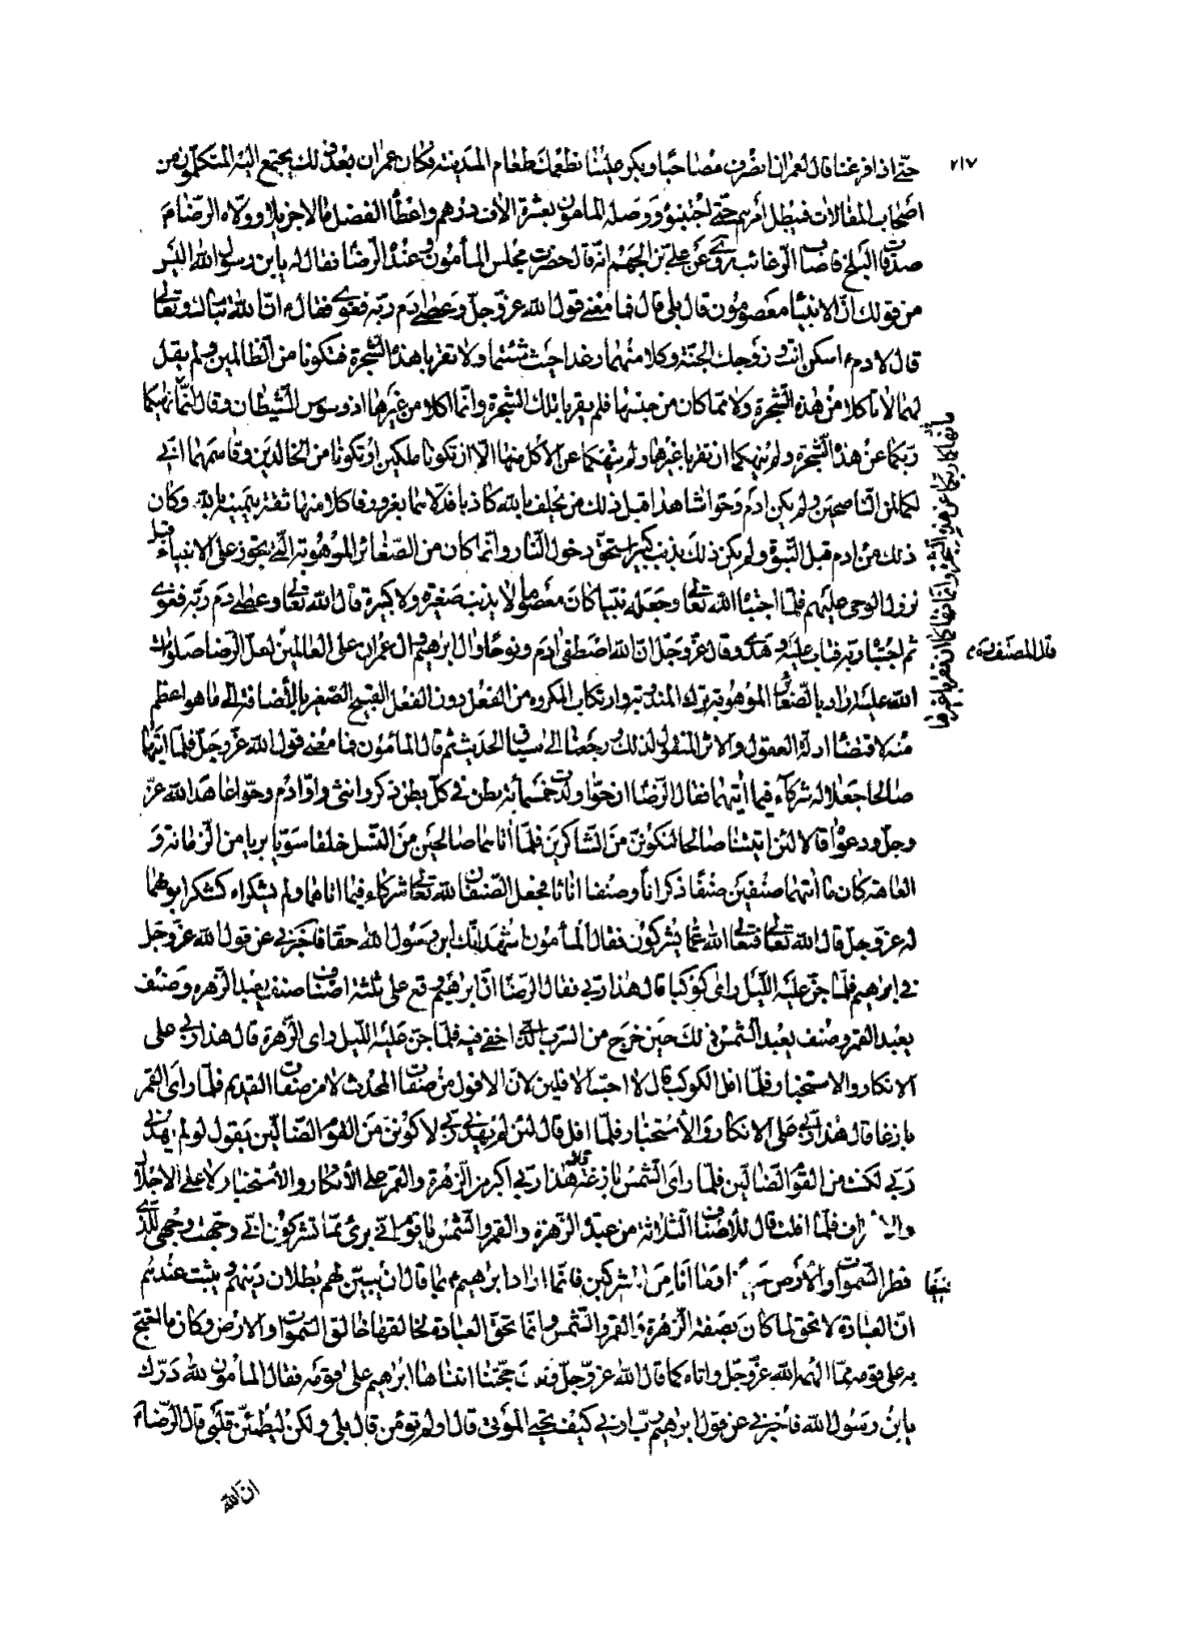 ٢١٧
حتى اذا فرغنا قال لعمران انصرف مصاحبا وبكر علينا نطعمك طعام المدينة فكان عمران بعد ذلك يجتمع اليه المتكلمون من
اصحاب المقالات فيبطل امرهم حتى اجتنبوه ووصله المامون بعشرة الاف درهم واعطاه الفضل مالا جزيلا وولاه الرضا م
صدقات البلخ فاصاب الرغائب روى عن على بن الجهم انه قال حضرت مجلس المأمون وعنده الرضا فقال له يا بن رسول الله اليس
من قولك ان الانبياء معصومون قال بلى قال فما معنى قول الله عز وجل وعصى ادم ربه فغوى فقال ان الله تبارك وتعالى
قال لادم اسكن انت وزوجك الجنة وكلا منها رغدا حيث شئتما ولا تقربا هذه الشجرة فتكونا من الظالمين ولم يقل
لهما لا تاكلا من هذه الشجرة ولا مما كان من جنسها فلم يقربا تلك الشجرة وانما اكلا من غيرها اذ وسوس الشيطان وقال انما نهيكما
ربكما عن هذه الشجرة ولم ينهكما ان تقربا غيرها ولم ينهكما عن الاكل منها الا ان تكونا ملكين او تكونا من الخالدين وقاسمهما انى
لكما لمن الناصحين ولم يكن ادم وحوا شاهدا قبل ذلك من يحلف بالله كاذبا فدلاهما بغرور فاكلا منها ثقة بيمينه بالله وكان
ذلك من ادم قبل النبوة ولم يكن ذلك بذنب كبير استحق دخول النار وانما كان من الصغائر الموهوبة التى تجوز على الانبياء قبل
نزول الوحى عليهم فلما اجتباه الله تعالى وجعله نبيا كان معصوما لا يذنب صغيرة ولا كبيرة قال الله تعالى وعصى ادم ربه فغوى
ثم اجتباه ربه فتاب عليه وهدى وقال عز وجل ان الله اصطفى ادم ونوحا وال ابراهيم وال عمران على العالمين لعل الرضا صلوات
قال المصنف ره
الله عليه اراد بالصغائر الموهوبة ترك المندوب وارتكاب المكروه من الفعل دون الفعل القبيح الصغير بالأضافة الى ما هو اعظم
منه لاقتضاء ادلة العقول والاثر المنقول لذلك ورجعنا الى سياق الحديث ثم قال المامون فما معنى قول الله عز وجل فلما اتيهما
صالحا جعلا له شركاء فيما اتيهما فقال الرضا ان حوا ولدت خمسمأة بطن فى كل بطن ذكر وانثى وان ادم وحوا عاهدا الله عز
وجل ودعواه قالا لئن اتيتنا صالحا لنكونن من الشاكرين فلما اتاهما صالحين من النسل خلقا سويا بريا من الزمانة و
العاهة كان ما اتيهما صنفين صنفا ذكرانا وصنفا اناثا فجعل الصنفان لله تعالى شركاء فيما اتاهما ولم يشكراه كشكر ابويهما
له عز وجل قال الله تعالى فتعالى الله عما يشركون فقال المأمون اشهد انك ابن رسول الله حقا فاخبرنى عن قول الله عز وجل
فى ابراهيم فلما جن عليه الليل راى كوكبا قال هذا ربى فقال الرضا ان ابراهيم وقع على ثلثة اصناف صنف يعبد الزهرة وصنف
يعبد القمر وصنف يعبد الشمس ذلك حين خرج من السرب الذى اخفى فيه فلما جن عليه الليل راى الزهرة قال هذا ربى على
الانكار والاستخبار فلما افل الكوكب قال لا احب الافلين لان الافول من صفات المحدث لا من صفات القديم فلما راى القمر
بازغا قال هذا ربى على الانكار والأستخبار فلما افل قال لئن لم يهدنى ربى لاكونن من القوم الضالين يقول لو لم يهدنى
ربى لكنت من القوم الضالين فلما راى الشمس بازغة قال هذا ربى اكبر من الزهرة والقمر على الأنكار والأستخبار لا على الاخبار
فلما افلت قال للأصناف الثلاثة من عبدة الزهرة والقمر والشمس يا قوم انى برئ مما تشركون انى وجهت وجهى للذى
فطر السموات والأرض حنيفا وما انا من المشركين فانما اراد ابراهيم بما قال ان يبين لهم بطلان دينهم ويثبت عندهم
ان العبادة لا تحق لما كان بصفة الزهرة والقمر والشمس وانما تحق العبادة لخالقها خالق السموات والارض وكان ما احتج
به على قومه مما الهمه الله عز وجل واتاه كما قال الله عز وجل وتلك حجتنا اتيناها ابراهيم على قومه فقال المأمون لله درك
يا بن رسول الله فأخبرنى عن قول ابراهيم رب ارنى كيف تحيى الموتى قال اولم تؤمن قال بلى ولكن ليطمئن قلبى قال الرضا م
ان الله